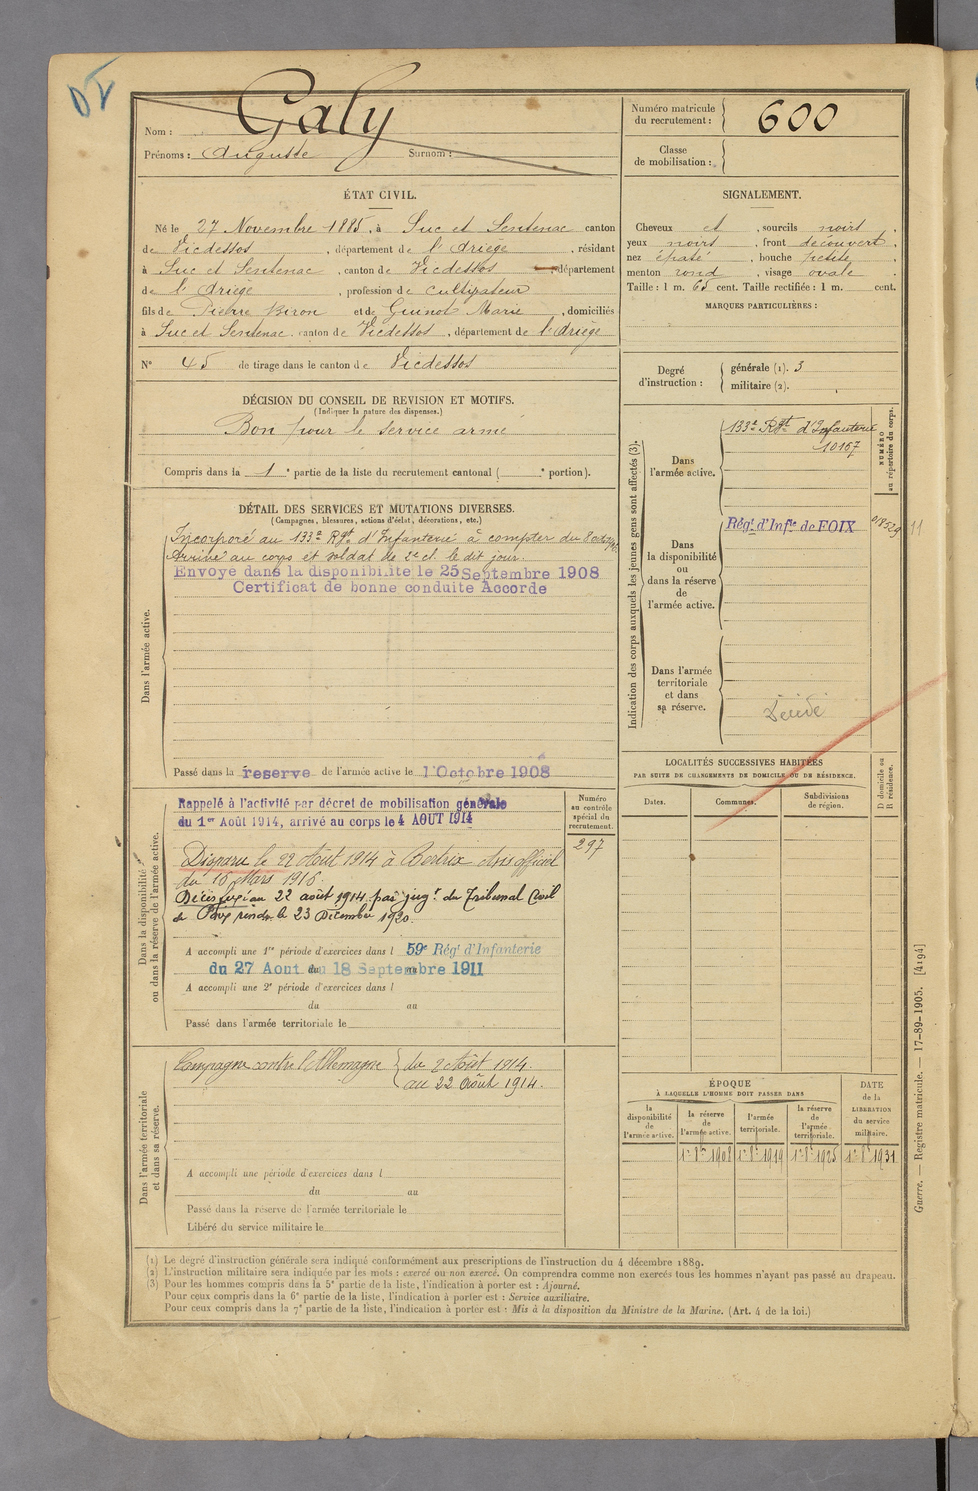 Nom : Galy
Prénoms : Auguste Surnom :
Numéro matricule du recrutement : 600
Classe de mobilisation :
ÉTAT CIVIL.
Né le 27 Novembre 1885, à Suc et Sentenac canton
de Vicdessos, département de l'Ariège, résidant
à Suc et Sentenac, canton de Vicdessos, département
de l'Ariège, profession de cultivateur
fils de Pierre Biron et de Guinot Marie, domiciliés
à Suc et Sentenac, canton de Vicdessos, département de l'Ariège
N° 45 de tirage dans le canton de Vicdessos
SIGNALEMENT.
Cheveux et, sourcils noirs,
yeux noirs, front découvert,
nez épaté, bouche petite,
menton rond, visage ovale.
Taille : 1 m. 65 cent. Taille rectifiée : 1 m. cent.
MARQUES PARTICULIÈRES :
Degré d'instruction :
générale (1). 3
militaire (2).
DÉCISION DU CONSEIL DE REVISION ET MOTIFS.
(Indiquer la nature des dispenses.)
Bon pour le service armé
Compris dans la 1e partie de la liste du recrutement cantonal ( e portion).
DÉTAIL DES SERVICES ET MUTATIONS DIVERSES.
(Campagnes, blessures, actions d'éclat, décorations, etc.)
Dans l'armée active.
Incorporé au 133e Rgt d'Infanterie à compter du 8
Arrivé au corps et soldat de 2e cl. le dit jour.
Envoyé dans la disponibilité le 25 Septembre 1908
Certificat de bonne conduite Accordé
Passé dans la réserve de l'armée active le 1 Octobre 1908
Indication des corps auxquels les jeunes gens sont affectés (3).
NUMÉRO au répertoire du corps.
Dans l'armée active.
133e Rgt d'Infanterie
10167
Dans la disponibilité ou dans la réserve de l'armée active.
Régt d'Infie de FOIX
11
Dans l'armée territoriale et dans sa réserve.
Décédé
Dans la disponibilité ou dans la réserve de l'armée active.
Rappelé à l'activité par décret de mobilisation générale
du 1er Août 1914, arrivé au corps le 4 AOUT 1914
Disparu le 22 Août 1914 à Bertrix Avis officiel
du 16 Mars 1916.
Décès fixé au 22 août 1914 par jugt du Tribunal Civil
de Foix rendu le 23 Décembre 1920.
A accompli une 1re période d'exercices dans l 59e Régt d'Infanterie
du 27 Aout au 18 Septembre 1911
A accompli une 2e période d'exercices dans l
du au
Passé dans l'armée territoriale le
Numéro au contrôle spécial du recrutement.
297
LOCALITÉS SUCCESSIVES HABITÉES
PAR SUITE DE CHANGEMENTS DE DOMICILE OU DE RÉSIDENCE.
Dates. Communes. Subdivisions de région. D domicile ou R résidence.
Dans l'armée territoriale et dans sa réserve.
Campagne contre l'Allemagne du 2 Août 1914.
au 22 Août 1914.
A accompli une période d'exercices dans l
du au
Passé dans la réserve de l'armée territoriale le
Libéré du service militaire le
ÉPOQUE
À LAQUELLE L'HOMME DOIT PASSER DANS
la disponibilité de l'armée active. la réserve de l'armée active. l'armée territoriale. la réserve de l'armée territoriale. DATE de la LIBÉRATION du service militaire.
1r 8bre 1908 1r 8bre 1919 1r 8bre 1925 1r 8bre 1931
(1) Le degré d'instruction générale sera indiqué conformément aux prescriptions de l'instruction du 4 décembre 1889.
(2) L'instruction militaire sera indiquée par les mots : exercé ou non exercé. On comprendra comme non exercés tous les hommes n'ayant pas passé au drapeau.
(3) Pour les hommes compris dans la 5e partie de la liste, l'indication à porter est : Ajourné.
Pour ceux compris dans la 6e partie de la liste, l'indication à porter est : Service auxiliaire.
Pour ceux compris dans la 7e partie de la liste, l'indication à porter est : Mis à la disposition du Ministre de la Marine. (Art. 4 de la loi.)
Guerre. — Registre matricule. — 17-89-1905. [4194]